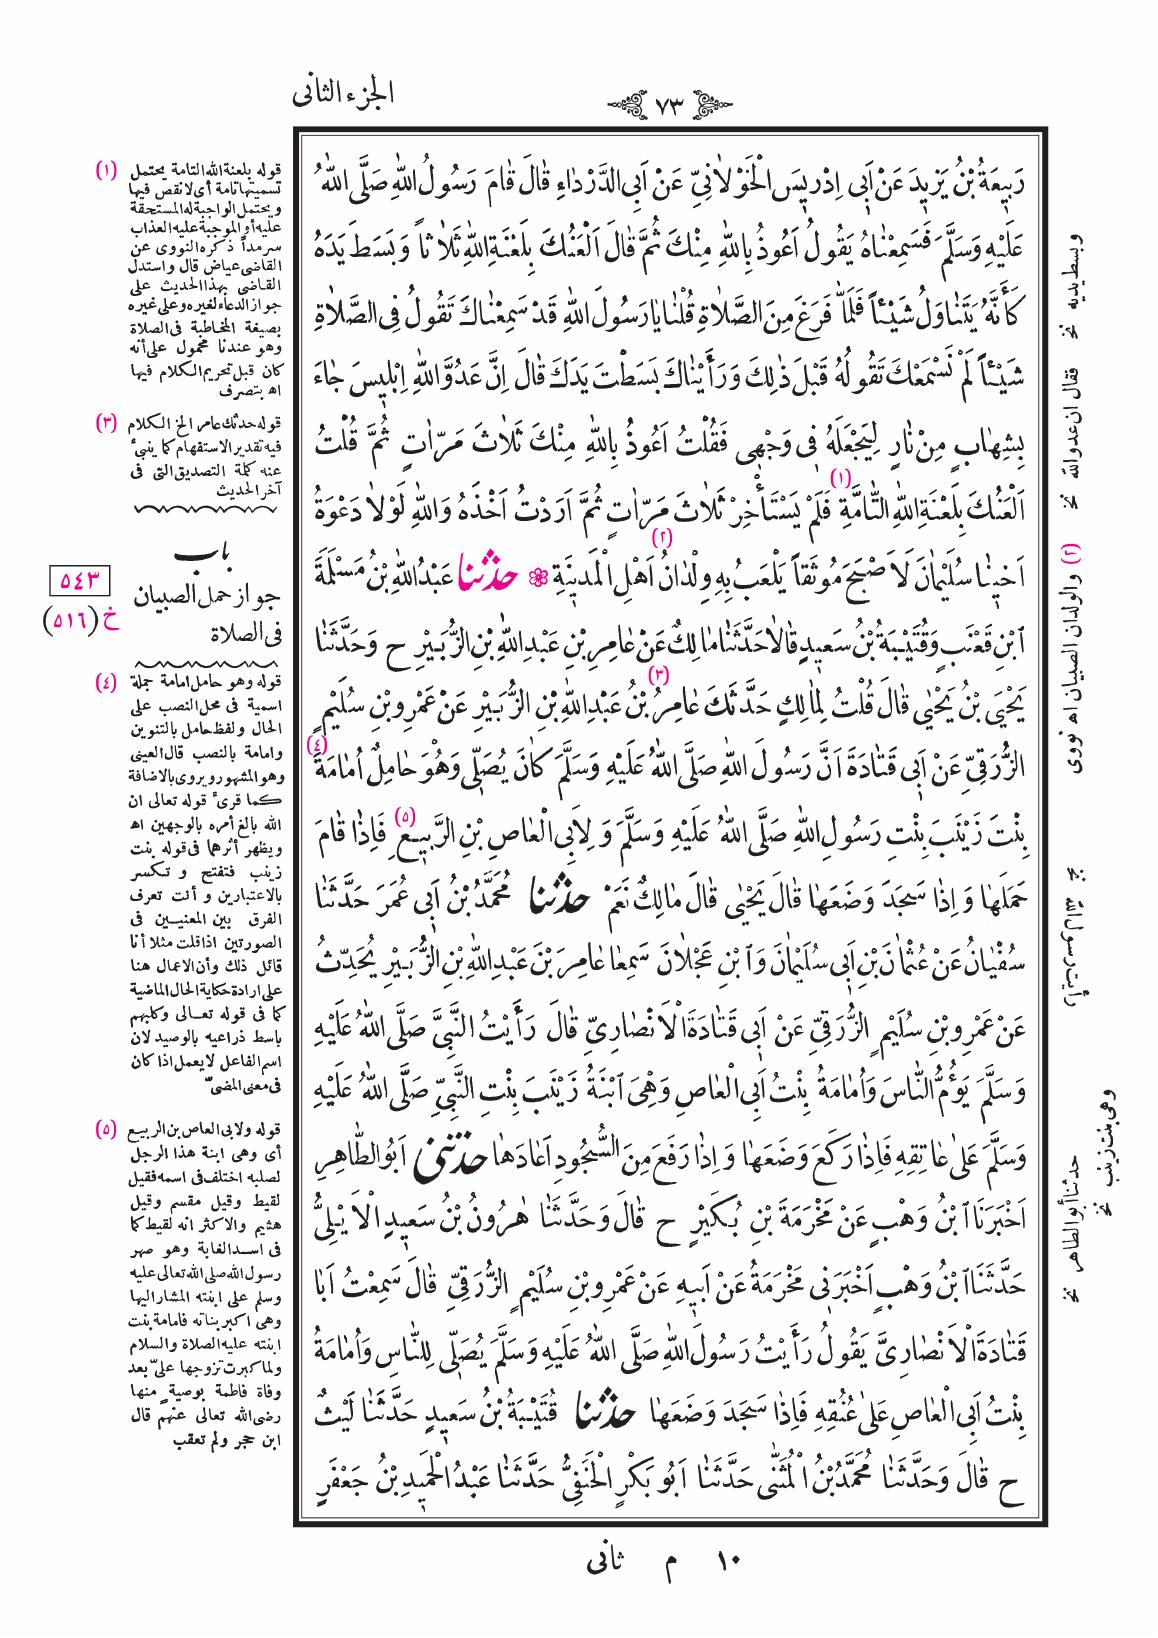 الجزء الثانى
٧٣
رَبِيعَةُ بْنُ يَزِيدَ عَنْ أَبِى اِدْرِيسَ الْخَوْلَانِىِّ عَنْ اَبِى الدَّرْدَاءِ قَالَ قَامَ رَسُولُ اللهِ صَلَّى اللهُ
عَلَيْهِ وَسَلَّمَ فَسَمِعْنَاهُ يَقُولُ اَعُوذُ بِاللهِ مِنْكَ ثُمَّ قَالَ اَلْعَنُكَ بِلَعْنَةِ اللهِ ثَلَاثاً وَبَسَطَ يَدَهُ
كَأَنَّهُ يَتَنَاوَلُ شَيْئاً فَلَمَّا فَرَغَ مِنَ الصَّلَاةِ قُلْنَا يَا رَسُولَ اللهِ قَدْ سَمِعْنَاكَ تَقُولُ فِى الصَّلَاةِ
شَيْئاً لَمْ نَسْمَعْكَ تَقُولُهُ قَبْلَ ذٰلِكَ وَرَأَيْنَاكَ بَسَطْتَ يَدَكَ قَالَ اِنَّ عَدُوَّ اللهِ اِبْلِيسَ جَاءَ
بِشِهَابٍ مِنْ نَارٍ لِيَجْعَلَهُ فِى وَجْهِى فَقُلْتُ اَعُوذُ بِاللهِ مِنْكَ ثَلَاثَ مَرَّاتٍ ثُمَّ قُلْتُ
اَلْعَنُكَ بِلَعْنَةِ اللهِ التَّامَّةِ (١) فَلَمْ يَسْتَأْخِرْ ثَلَاثَ مَرَّاتٍ ثُمَّ اَرَدْتُ اَخْذَهُ وَاللهِ لَوْلَا دَعْوَةُ
اَخِينَا سُلَيْمَانَ لَاَصْبَحَ مُوثَقاً يَلْعَبُ بِهِ وِلْدَانُ (٢) اَهْلِ الْمَدِينَةِ ❁ حَدَّثَنَا عَبْدُ اللهِ بْنُ مَسْلَمَةَ
ابْنِ قَعْنَبٍ وَقُتَيْبَةُ بْنُ سَعِيدٍ قَالَا حَدَّثَنَا مَالِكٌ عَنْ عَامِرِ بْنِ عَبْدِ اللهِ بْنِ الزُّبَيْرِ ح وَحَدَّثَنَا
يَحْيَى بْنُ يَحْيَى قَالَ قُلْتُ لِمَالِكٍ حَدَّثَكَ عَامِرُ (٣) بْنُ عَبْدِ اللهِ بْنِ الزُّبَيْرِ عَنْ عَمْرِو بْنِ سُلَيْمٍ
الزُّرَقِىِّ عَنْ اَبِى قَتَادَةَ اَنَّ رَسُولَ اللهِ صَلَّى اللهُ عَلَيْهِ وَسَلَّمَ كَانَ يُصَلِّى وَهُوَ حَامِلٌ اُمَامَةَ (٤)
بِنْتَ زَيْنَبَ بِنْتِ رَسُولِ اللهِ صَلَّى اللهُ عَلَيْهِ وَسَلَّمَ وَلِاَبِى الْعَاصِ بْنِ الرَّبِيعِ (٥) فَاِذَا قَامَ
حَمَلَهَا وَاِذَا سَجَدَ وَضَعَهَا قَالَ يَحْيَى قَالَ مَالِكٌ نَعَمْ حَدَّثَنَا مُحَمَّدُ بْنُ اَبِى عُمَرَ حَدَّثَنَا
سُفْيَانُ عَنْ عُثْمَانَ بْنِ اَبِى سُلَيْمَانَ وَابْنِ عَجْلَانَ سَمِعَا عَامِرَ بْنَ عَبْدِ اللهِ بْنِ الزُّبَيْرِ يُحَدِّثُ
عَنْ عَمْرِو بْنِ سُلَيْمٍ الزُّرَقِىِّ عَنْ اَبِى قَتَادَةَ الْاَنْصَارِىِّ قَالَ رَأَيْتُ النَّبِىَّ صَلَّى اللهُ عَلَيْهِ
وَسَلَّمَ يَؤُمُّ النَّاسَ وَاُمَامَةُ بِنْتُ اَبِى الْعَاصِ وَهْىَ ابْنَةُ زَيْنَبَ بِنْتِ النَّبِىِّ صَلَّى اللهُ عَلَيْهِ
وَسَلَّمَ عَلَى عَاتِقِهِ فَاِذَا رَكَعَ وَضَعَهَا وَاِذَا رَفَعَ مِنَ السُّجُودِ اَعَادَهَا حَدَّثَنِى اَبُو الطَّاهِرِ
اَخْبَرَنَا ابْنُ وَهْبٍ عَنْ مَخْرَمَةَ بْنِ بُكَيْرٍ ح قَالَ وَحَدَّثَنَا هٰرُونُ بْنُ سَعِيدٍ الْاَيْلِىُّ
حَدَّثَنَا ابْنُ وَهْبٍ اَخْبَرَنِى مَخْرَمَةُ عَنْ اَبِيهِ عَنْ عَمْرِو بْنِ سُلَيْمٍ الزُّرَقِىِّ قَالَ سَمِعْتُ اَبَا
قَتَادَةَ الْاَنْصَارِىَّ يَقُولُ رَأَيْتُ رَسُولَ اللهِ صَلَّى اللهُ عَلَيْهِ وَسَلَّمَ يُصَلِّى لِلنَّاسِ وَاُمَامَةُ
بِنْتُ اَبِى الْعَاصِ عَلَى عُنُقِهِ فَاِذَا سَجَدَ وَضَعَهَا حَدَّثَنَا قُتَيْبَةُ بْنُ سَعِيدٍ حَدَّثَنَا لَيْثٌ
ح قَالَ وَحَدَّثَنَا مُحَمَّدُ بْنُ الْمُثَنَّى حَدَّثَنَا اَبُو بَكْرٍ الْحَنَفِىُّ حَدَّثَنَا عَبْدُ الْحَمِيدِ بْنُ جَعْفَرٍ
وبسط يديه نخ
فقال ان عدو الله نخ
(٢) والولدان الصبيان اه نووى
رأيت رسول الله نخ
وهى بنت زينب نخ
حدثنا أبو الطاهر نخ
(١) قوله بلعنة الله التامة يحتمل
تسميتها تامة أى لا نقص فيها
ويحتمل الواجبة له المستحقة
عليه أو الموجبة عليه العذاب
سرمداً ذكره النووى عن
القاضى عياض قال واستدل
القاضى بهذا الحديث على
جواز الدعاء لغيره وعلى غيره
بصيغة المخاطبة فى الصلاة
وهو عندنا محمول على أنه
كان قبل تحريم الكلام فيها
اه بتصرف
(٣) قوله حدثك عامر الخ الكلام
فيه تقدير الاستفهام كما ينبىء
عنه كلمة التصديق التى فى
آخر الحديث
باب
جواز حمل الصبيان
فى الصلاة
٥٤٣
خ (٥١٦)
(٤) قوله وهو حامل امامة جملة
اسمية فى محل النصب على
الحال ولفظ حامل بالتنوين
وامامة بالنصب قال العينى
وهو المشهور ويروى بالاضافة
كما قرىء قوله تعالى ان
الله بالغ أمره بالوجهين اه
ويظهر أثرهما فى قوله بنت
زينب فتفتح وتكسر
بالاعتبارين و أنت تعرف
الفرق بين المعنيين فى
الصورتين اذا قلت مثلا أنا
قائل ذلك وأن الاعمال هنا
على ارادة حكاية الحال الماضية
كما فى قوله تعالى وكلبهم
باسط ذراعيه بالوصيد لان
اسم الفاعل لا يعمل اذا كان
فى معنى المضىّ
(٥) قوله ولابى العاص بن الربيع
أى وهى ابنة هذا الرجل
لصلبه اختلف فى اسمه فقيل
لقيط وقيل مقسم وقيل
هشيم والاكثر انه لقيط كما
فى اسد الغابة وهو صهر
رسول الله صلى الله تعالى عليه
وسلم على ابنته المشار اليها
وهى اكبر بناته فامامة بنت
ابنته عليه الصلاة والسلام
ولما كبرت تزوجها علىّ بعد
وفاة فاطمة بوصية منها
رضى الله تعالى عنهم قال
ابن حجر ولم تعقب
١٠ م ثانى